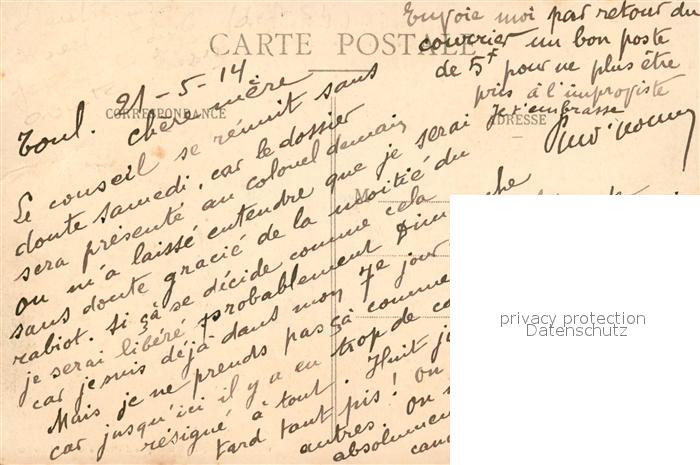 Envoie moi par retour du
CARTE POSTALE
courrier un bon poste
de 5f pour ne plus être
pris à l'improviste
Je t'embrasse
CORRESPONDANCE
ADRESSE
Toul. 21-5-14
Chère mère
Le conseil se réunit sans
doute samedi, car le dossier
sera présenté au colonel demain
on m'a laissé entendre que je serai
sans doute gracié de la moitié du
rabiot. Si çà se décide comme cela
je serai libéré probablement Dimanche
car je suis déjà dans mon 7e jour
Mais je ne prends pas çà comme
car jusqu'ici il y a eu trop de
résigné à tout. Huit
tard tant pis! on
autres. On
absolument
M
privacy protection
Datenschutz